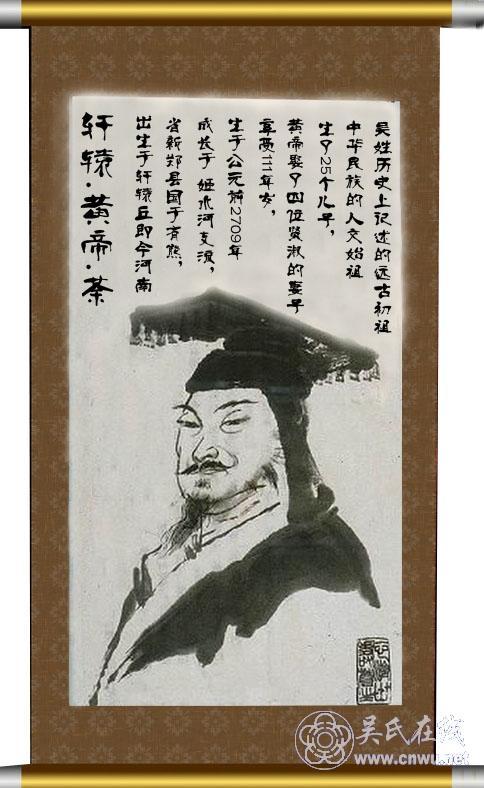 轩辕·黄帝·荼
出生于轩辕丘即今河南
省新郑县国于有熊,
成长于 姬水河支流,
生于公元前2709年
享111年岁,
黄帝娶了四位贤淑的妻子
生了25个儿子,
中华民族的人文始祖
吴姓历史上记述的远古初祖
吴氏在线
www.cnwu.net